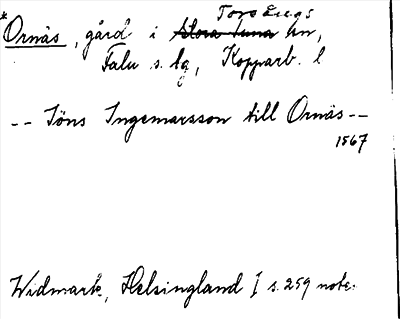 Torsångs
*Ornäs, gård i Stora Tuna sn,
Falu s. lg, Kopparb. l
-- Jöns Ingemarsson till Ornäs --
1567
Widmark, Helsingland I s. 259 note.